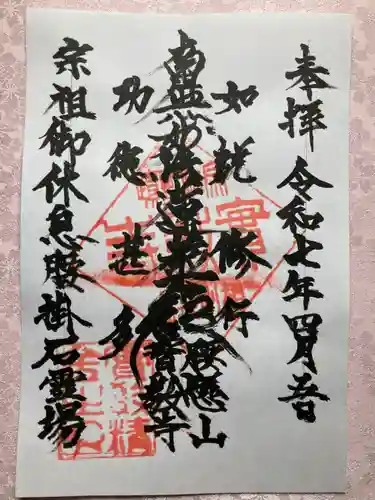 奉拝 令和七年四月五日
如説修行
南無妙法蓮華経
功徳甚多
腰懸山
妙音教寺
宗祖御休息腰掛石霊場